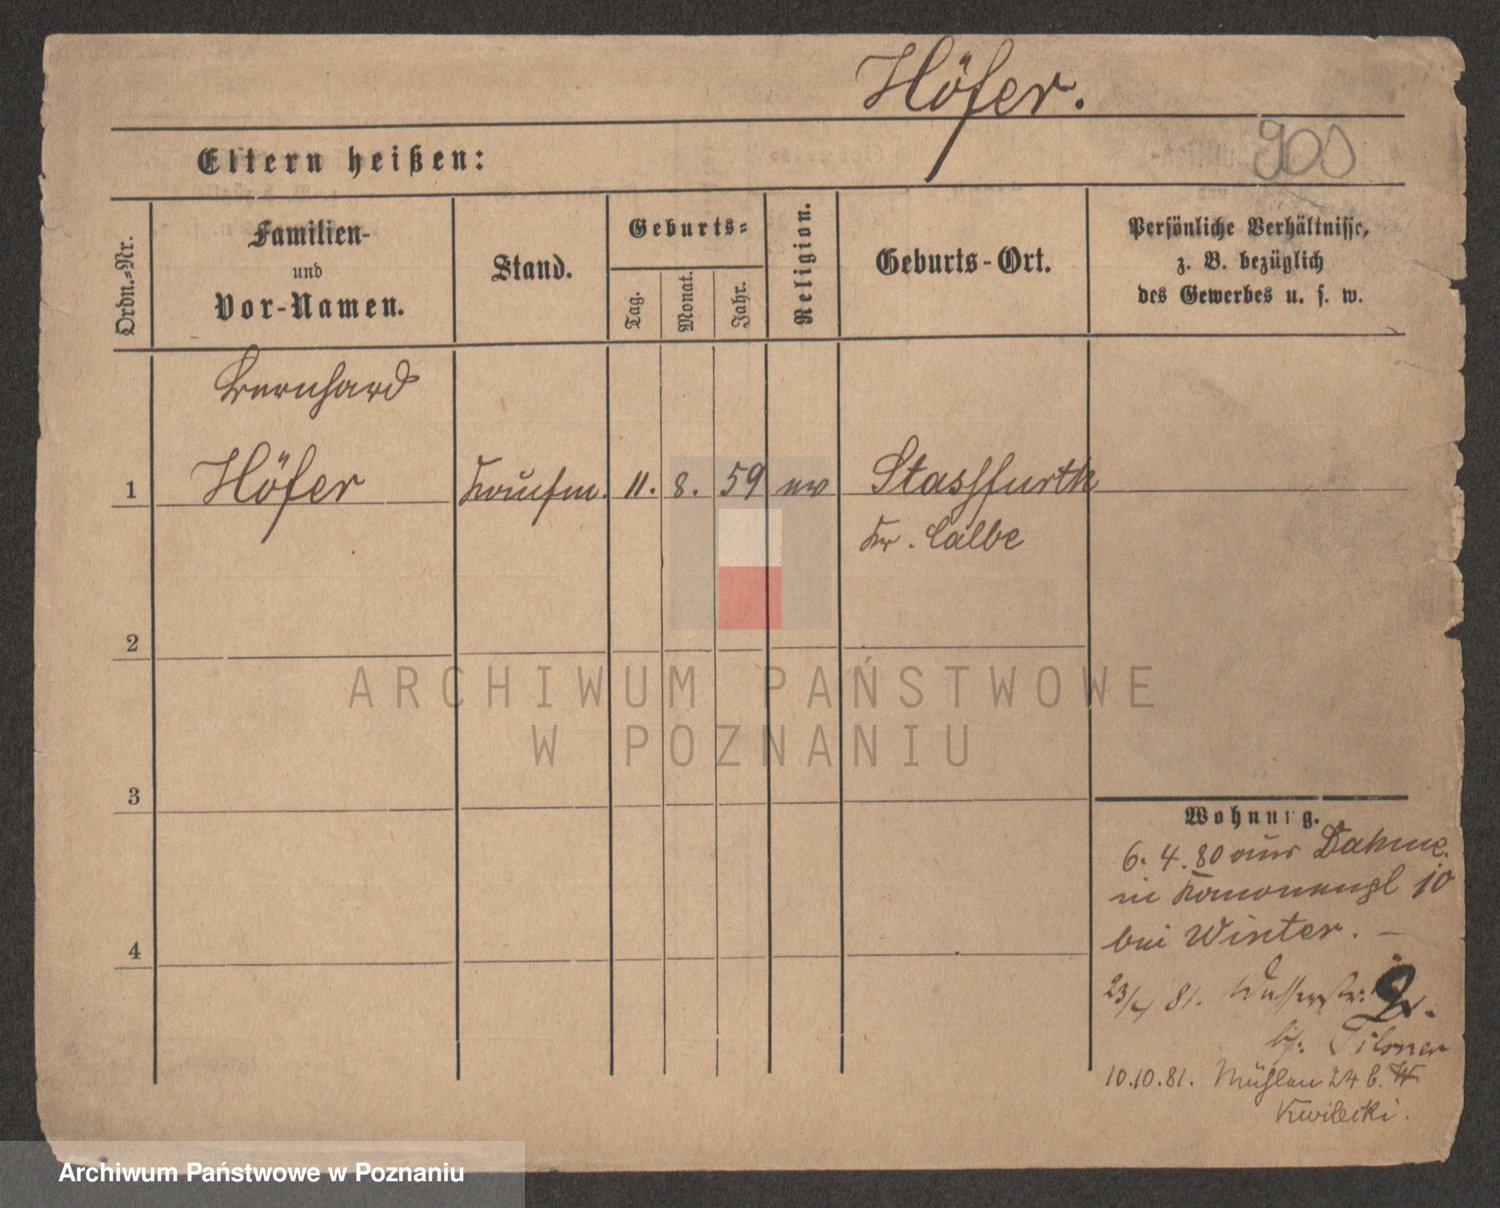 Höfer.
Eltern heißen:
Ordn.=Nr.
Familien-
und
Vor-Namen.
Stand.
Geburts=
Tag.
Monat.
Jahr.
Religion.
Geburts-Ort.
Persönliche Verhältnisse,
z. B. bezüglich
des Gewerbes u. s. w.
Bernhard
1 Höfer Kaufm. 11. 8. 59 ev Stassfurth
Kr. Calbe
2
ARCHIWUM PAŃSTWOWE
W POZNANIU
3
Wohnung.
6. 4. 80 aus Dahme.
in Kanonenpl 10
4
bei Winter. –
81. Wasserstr: 2.
bei: Pilsner
10.10.81. Mühlen 24 b.
Kwilecki.
Archiwum Państwowe w Poznaniu